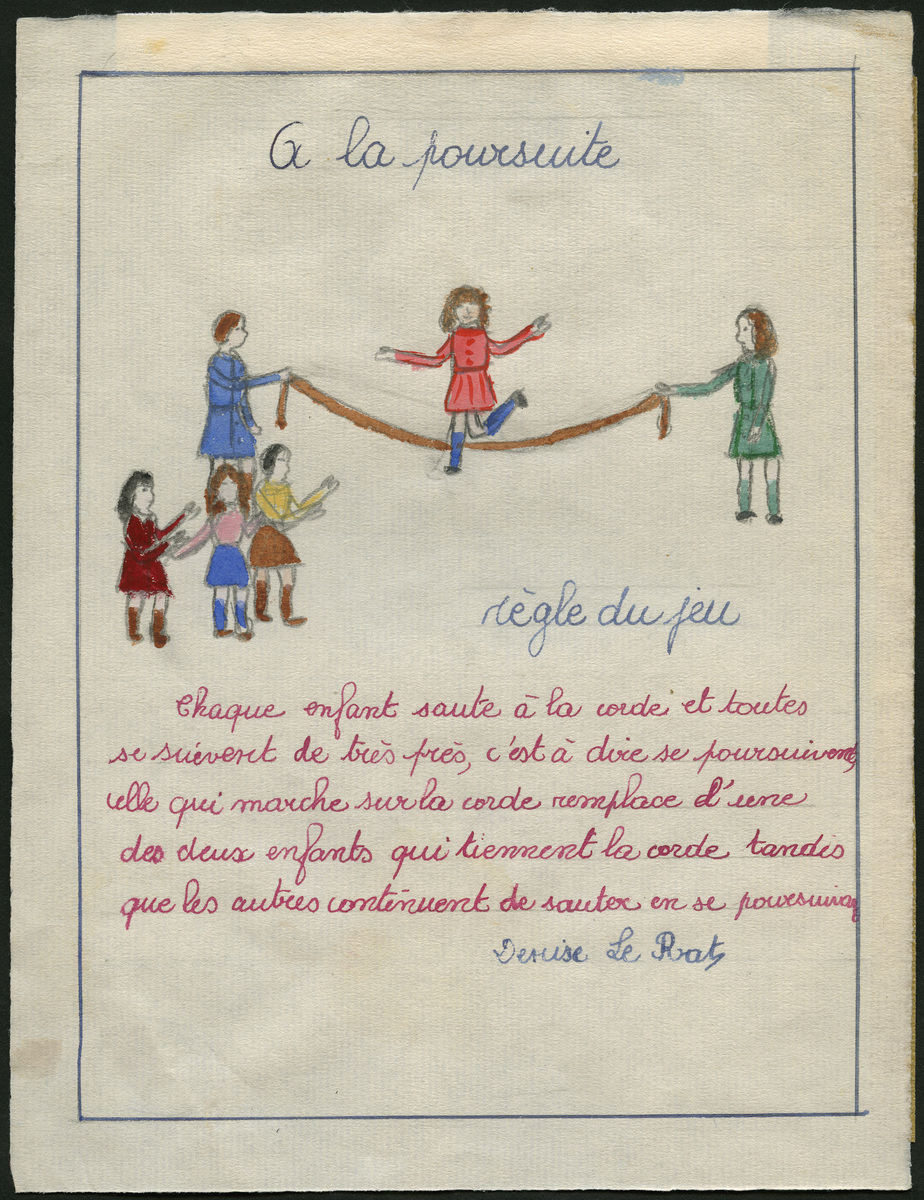 A la poursuite
règle du jeu
Chaque enfant saute à la corde et toutes
se suivent de très près, c'est à dire se poursuivent,
celle qui marche sur la corde remplace d'une
des deux enfants qui tiennent la corde tandis
que les autres continuent de sauter en se poursuivan
Denise Le Rat